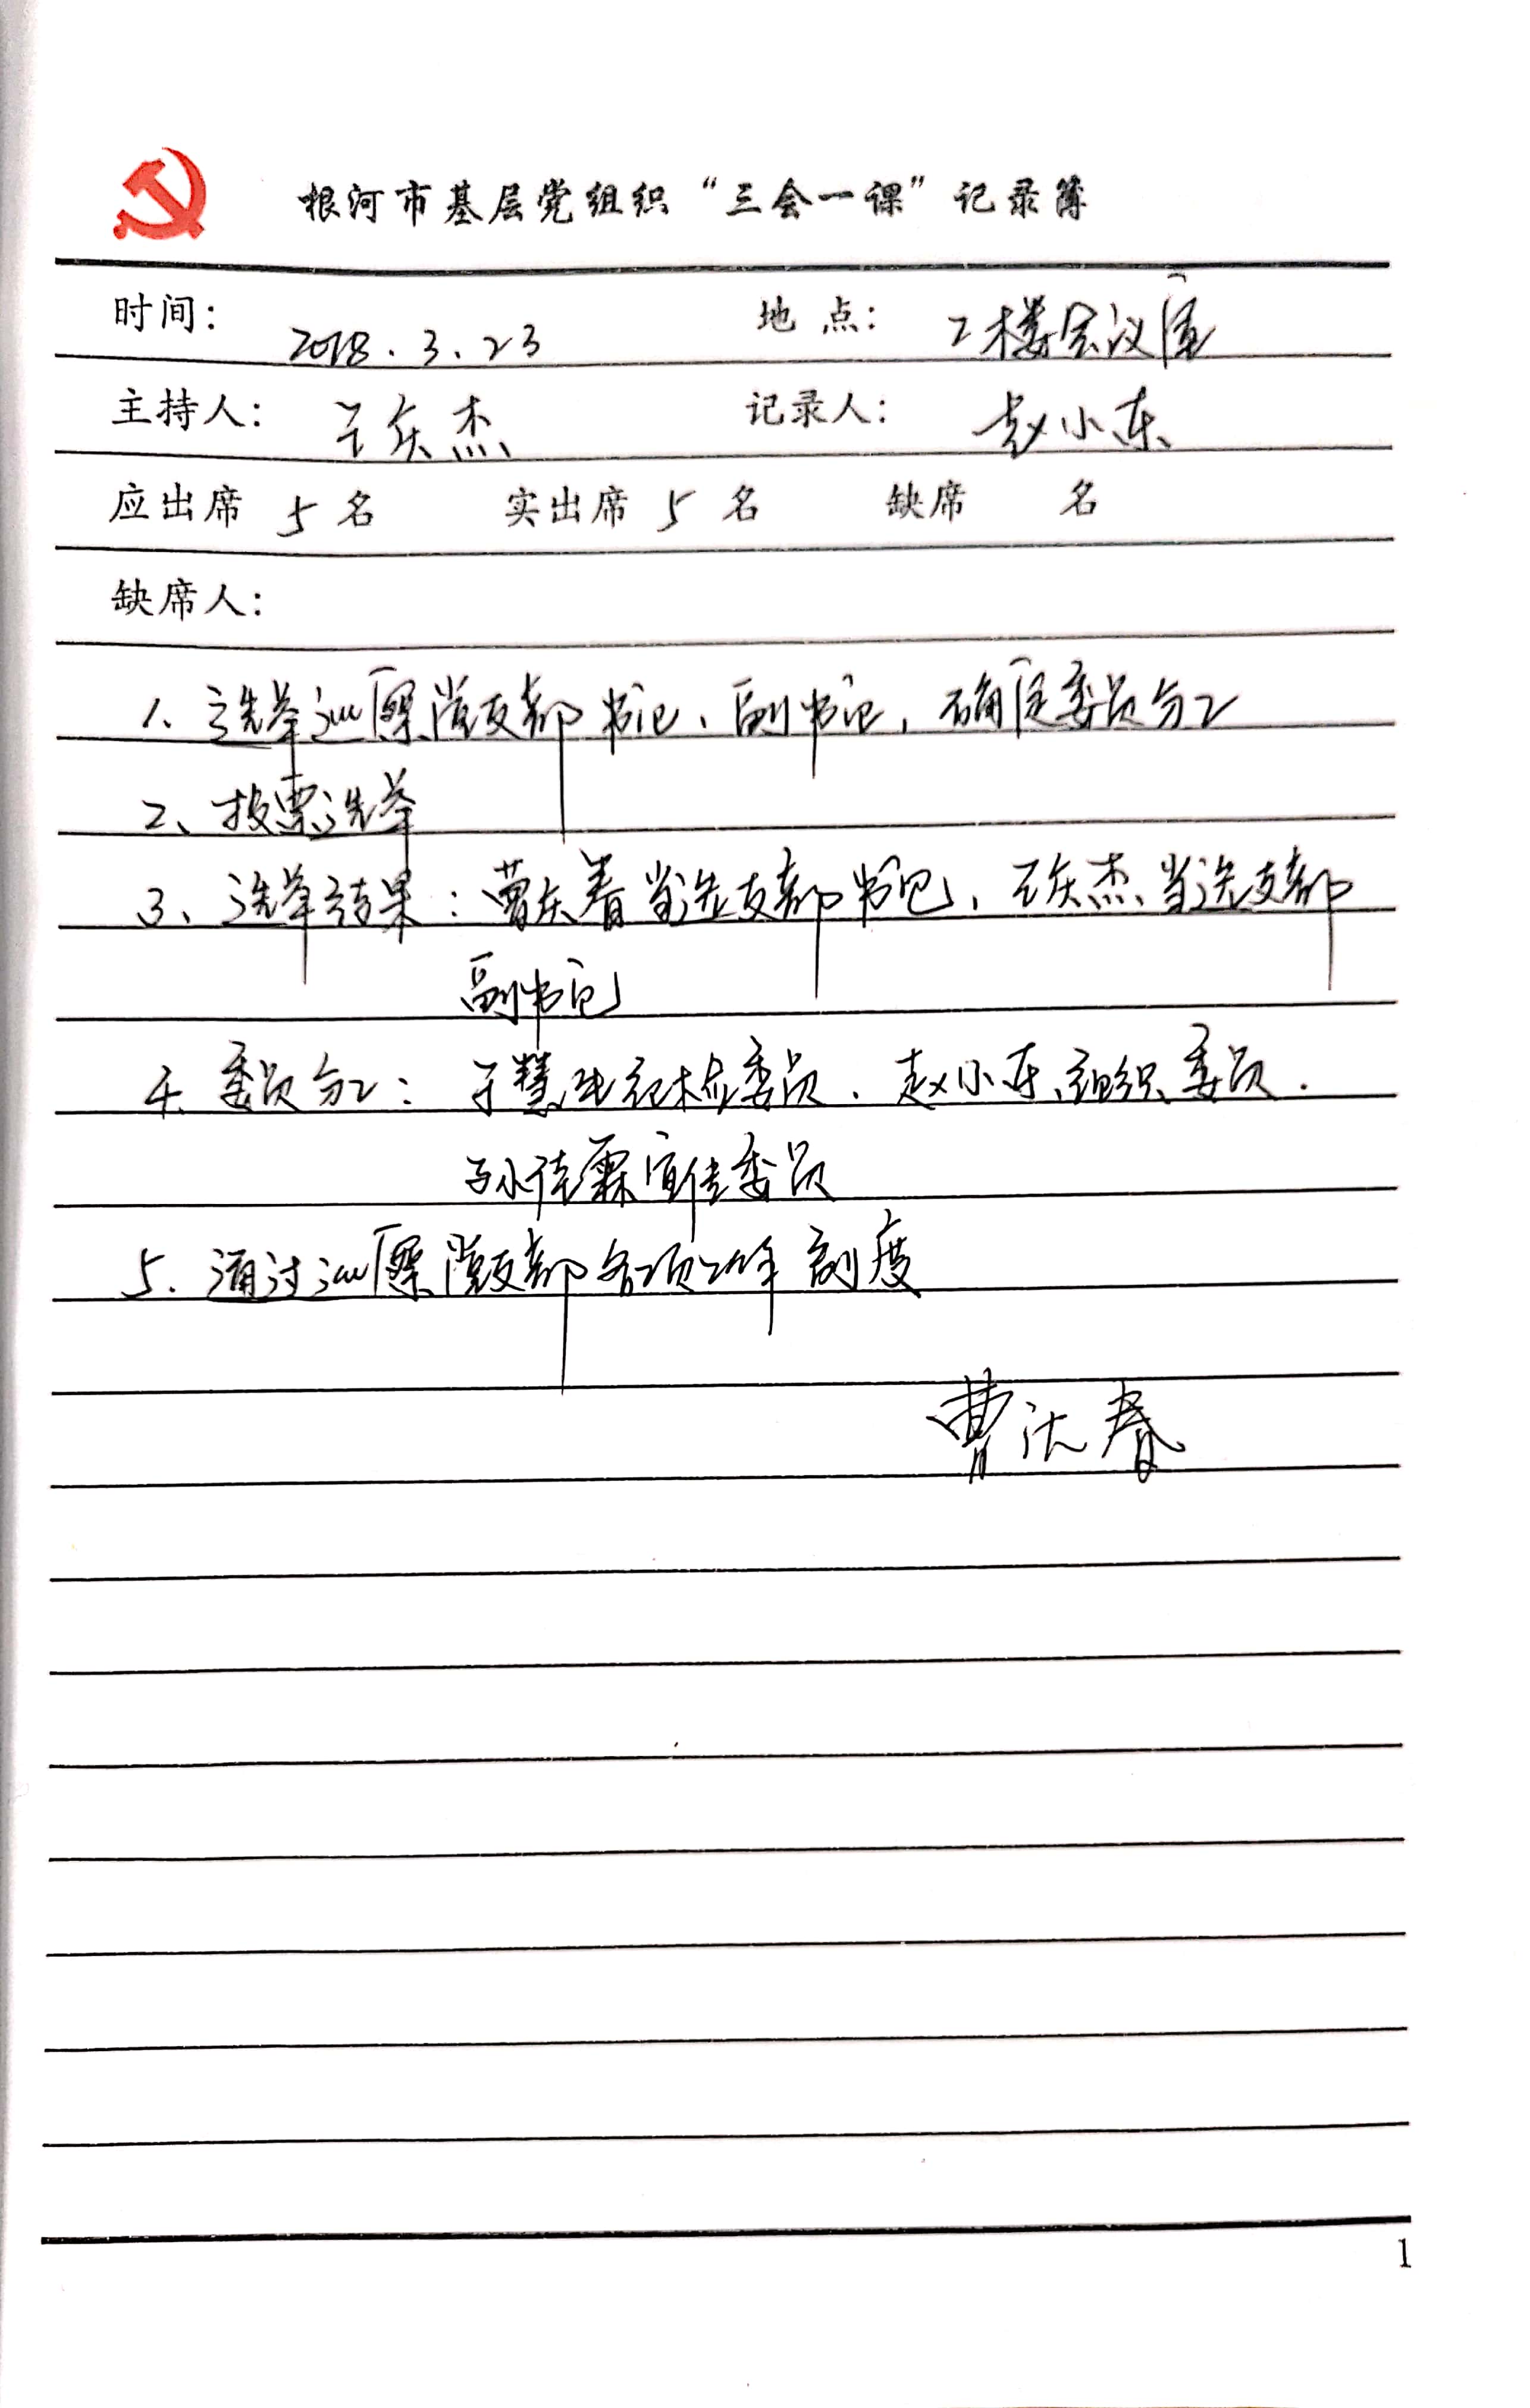 根河市基层党组织“三会一课”记录簿
时间： 2018.3.23 地点： 2楼会议室
主持人： 王庆杰 记录人： 赵小东
应出席 5 名 实出席 5 名 缺席 名
缺席人：
1、选举 党支部书记、副书记，确定委员分工
2、投票选举
3、选举结果：曹 春当选支部书记、王庆杰当选支部
副书记
4、委员分工： 于慧 纪检委员、赵小东组织委员、
孙 霖宣传委员
5、通过 党支部各项工作制度
曹 春
1